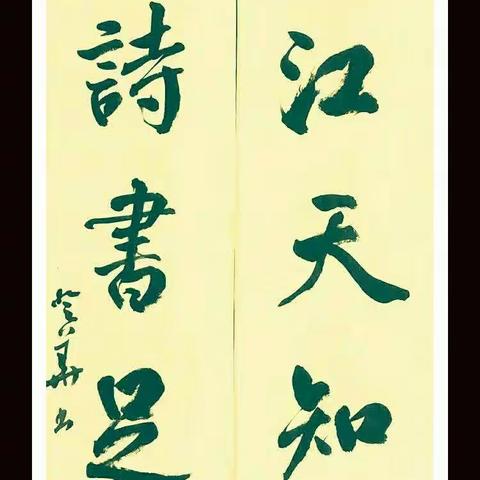 江天知
詩書足